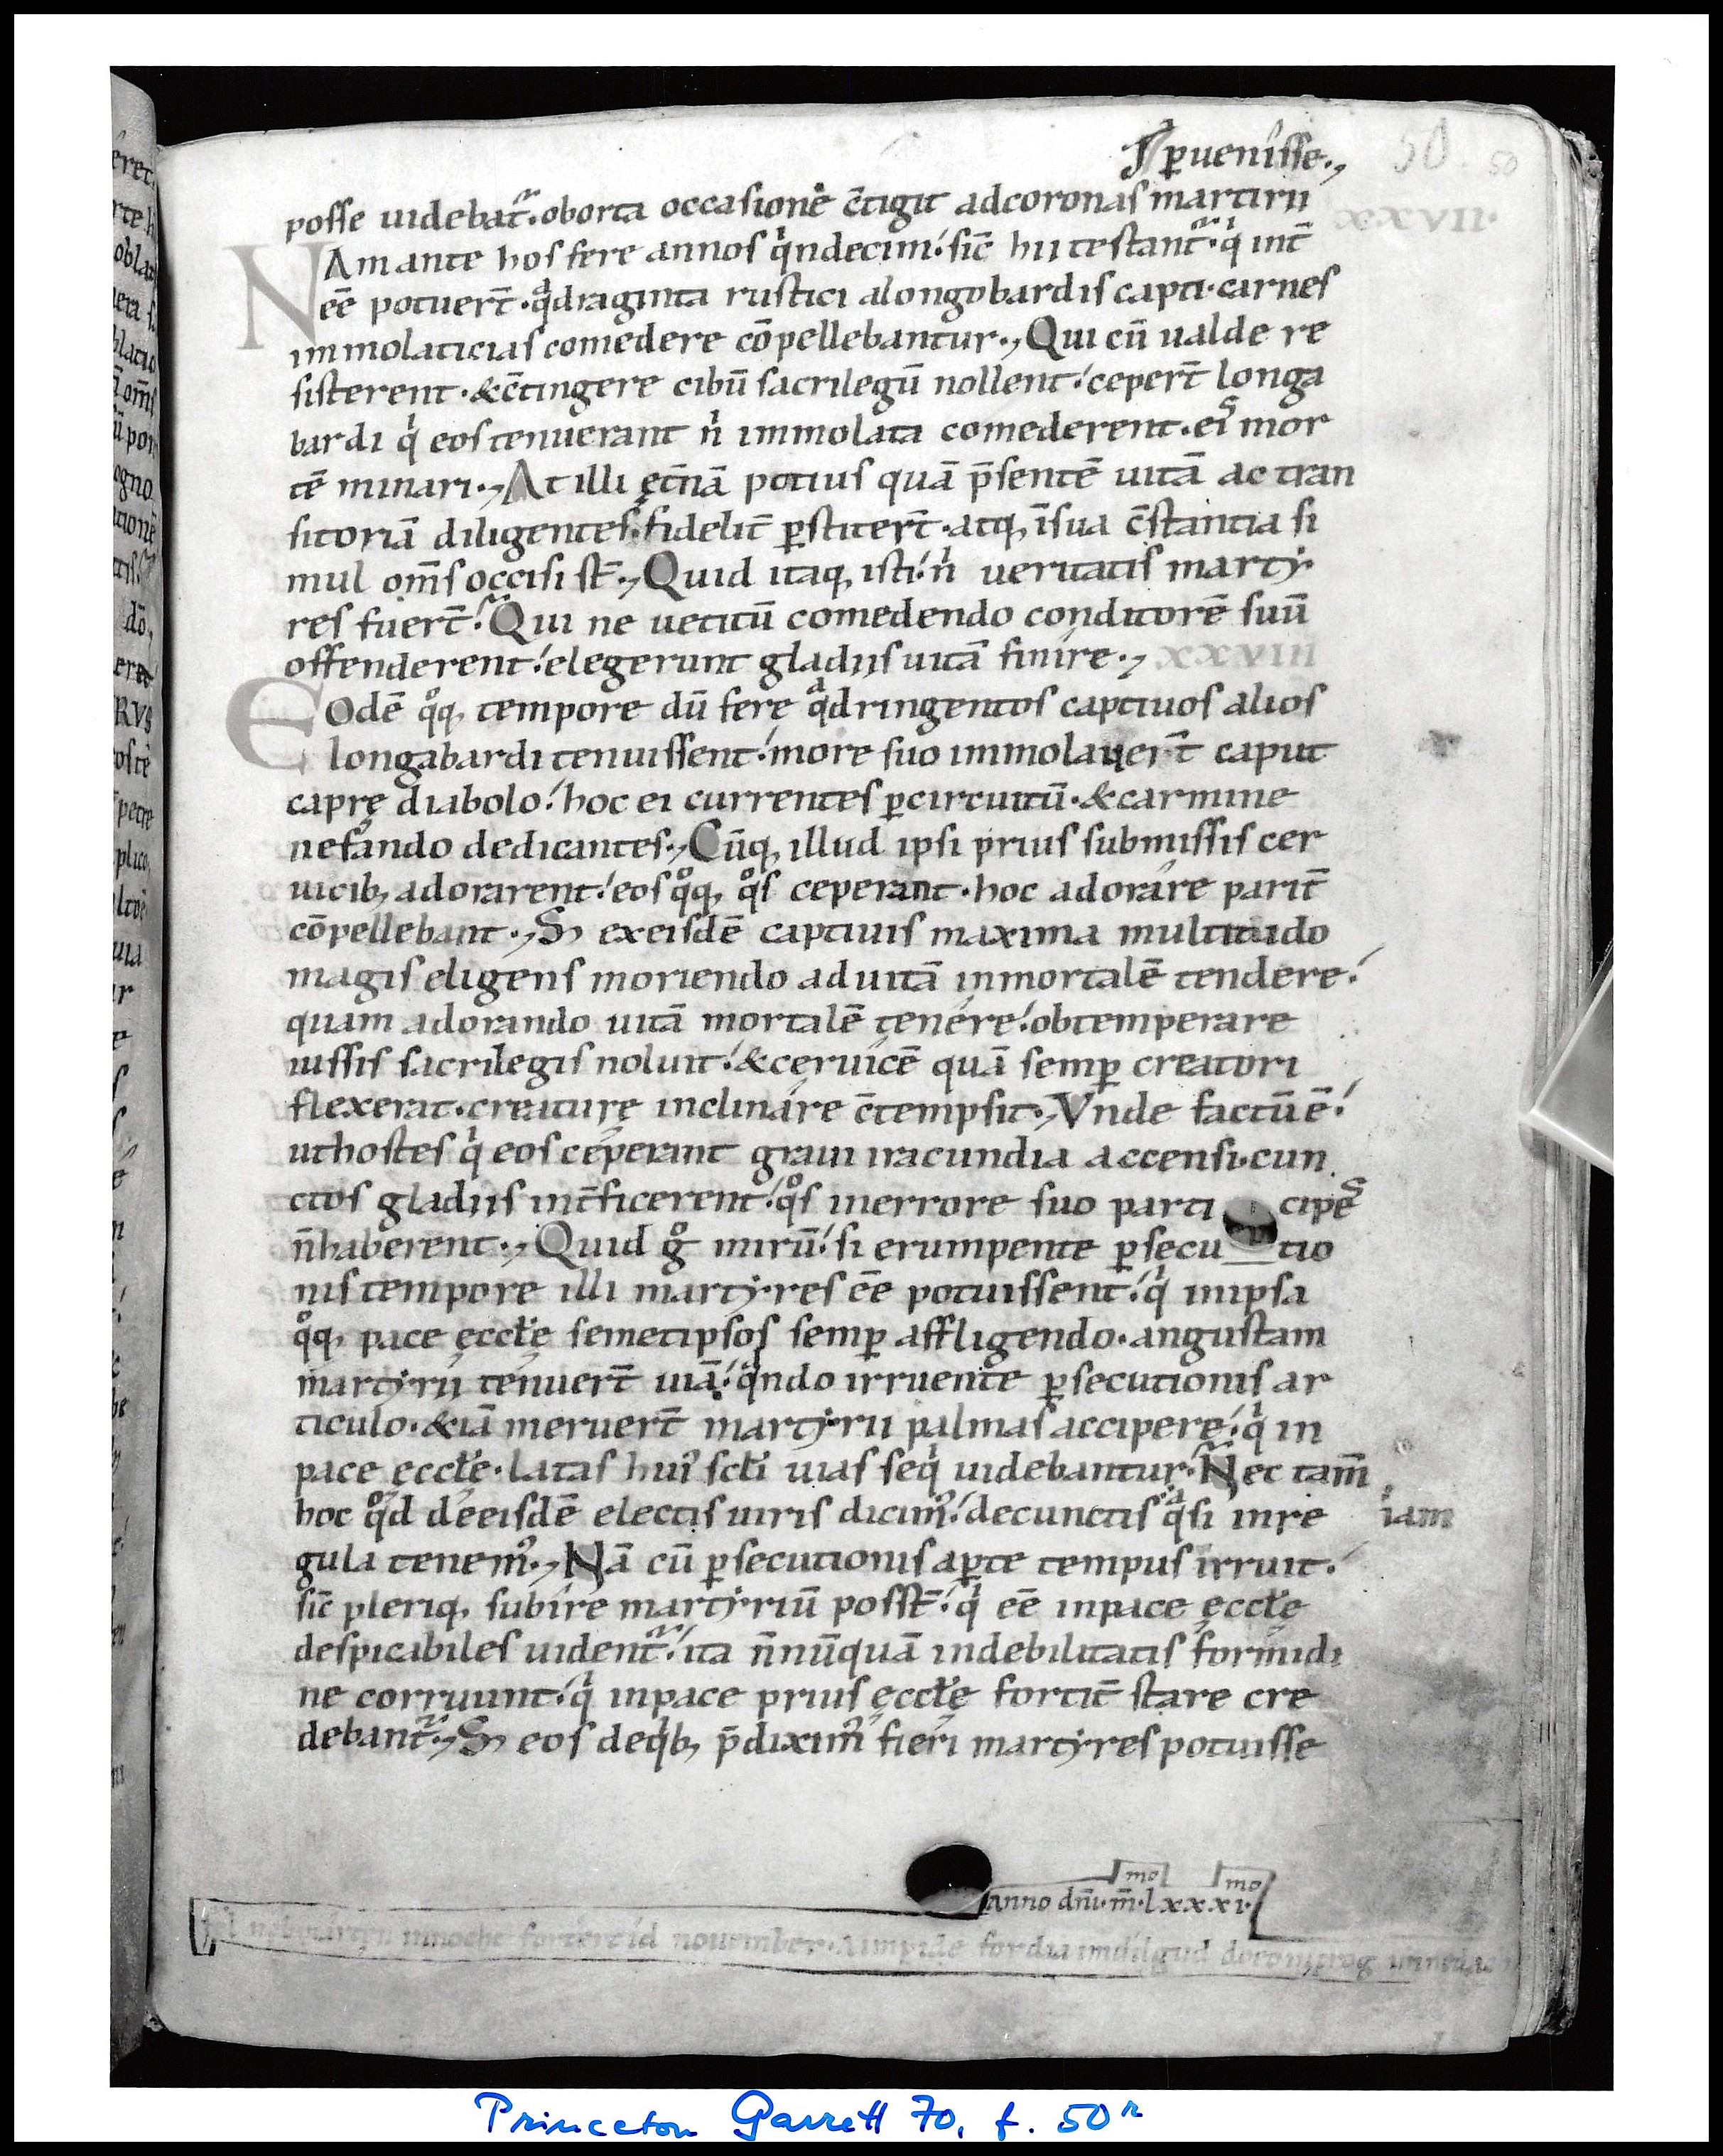 ꝑuenisse.,
50 50
posse uidebat᷑. oborta occasione c̄tigit ad coronas martirii
XXVII.
NAm ante hos fere annos qͥndecim. sic̄ hii testant᷑. qͥ int̄
ēē potuer̄t. qᷓdraginta rustici alongobardis capti. carnes
immolaticias comedere cōpellebantur., Qui cū ualde re
sisterent. & c̄tingere cibū sacrilegū nollent. ceper̄t longa
bardi qͥ eos tenuerant nͥ immolata comederent. eiˢ mor
tē minari., At illi ęt̄nā potius quā p̄sentē uitā ac tran
sitoriā diligentes. fidelit̄ ꝑstiter̄t. atq, īsua c̄stantia si
mul om̄s occisi st̄., Quid itaq, isti. nͥ ueritatis marty
res fuer̄t. Qui ne uetitū comedendo conditorē suū
offenderent. elegerunt gladiis uitā finire., XXVIII
EOdē qͦq, tempore dū fere qᷓdringentos captiuos alios
longabardi tenuissent. more suo immolauer̄t caput
caprę diabolo. hoc ei currentes ꝑcircuitū. & carmine
nefando dedicantes., Cūq, illud ipsi prius submissis cer
uicib, adorarent. eos qͦq, qͦs ceperant. hoc adorare parit̄
cōpellebant., S, exeisdē captiuis maxima multitudo
magis eligens moriendo ad uitā inmortalē tendere.
quam adorando uitā mortalē tenere. obtemperare
iussis sacrilegis noluit. & ceruicē quā semꝑ creatori
flexerat. creaturę inclinare c̄tempsit., Vnde factū ē.
ut hostes qͥ eos ceperant graui iracundia accensi. cun
ctos gladiis int̄ficerent. qͦs inerrore suo parti cipeˢ
n̄ haberent., Quid gͦ mirū. si erumpente ꝑsecu tio
nis tempore illi martyres ēē potuissent. qͥ inipsa
qͦq, pace ęccłe semetipsos semꝑ affligendo. angustam
martyrii tenuer̄t uiā. qᷓndo irruente ꝑsecutionis ar
ticulo. & iā meruer̄t martyrii palmas accipere. qͥ in
pace ęccłe. latas huiꝰ scłi uias seqͥ uidebantur. Nec tam̄
hoc qͦd deeisdē electis uiris dicimꝰ. decunctis qᷓsi inre
iam
gula tenemꝰ., Nā cū ꝑsecutionis aꝑte tempus irruit.
sic̄ pleriq, subire martyriū posst̄. qͥ ēē inpace ęccłę
despicabiles uident᷑. ita n̄nūquā indebilitatis formidi
ne corruunt. qͥ inpace prius ęccłę fortit̄ stare cre
debant᷑., S, eos deqͥb, p̄diximꝰ fieri martyres potuisse
mo mo
anno dn̄i. m̄. lxxxi.
innoche november.
Princeton Garrett 70, f. 50r